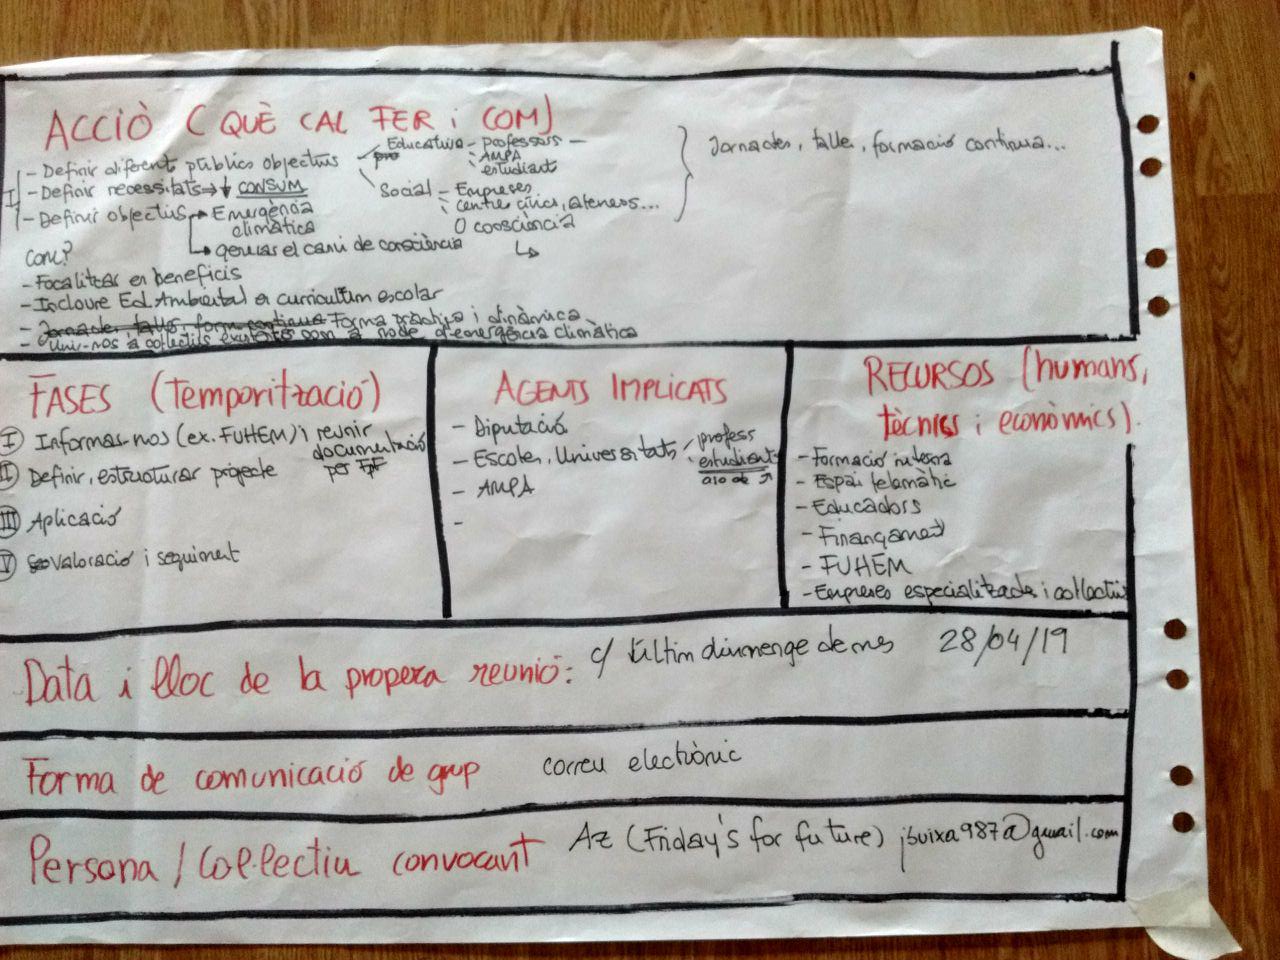 ACCIÒ ( QUÈ CAL FER i COM)
I
- Definir diferent públics objectius
Educativa - professors -
- AMPA
estudiant
Jornades, taller, formació continua...
- Definir necessitats → ↓ CONSUM
Social - Empreses
- centre cívics, ateneos...
- Definir objectius → Emergència
climàtica
O consciència
↳ generar el canvi de consciència
Com?
- Focalitzar en beneficis
- Incloure Ed. Ambiental en curriculum escolar
- Jornades, taller, form continua Forma pràctica i dinàmica
- Unir-nos a col·lectius existents com a node d'emergència climàtica
FASES (Temporització)
I Informar-nos (ex. FUHEM) i reunir
documentació
per
II Definir, estructurar projecte
III Aplicació
IV Valoració i seguiment
AGENTS IMPLICATS
- Diputació
- Escoles, Universitats
profess
estudiant
- AMPA
-
RECURSOS (humans,
tècnics i econòmics).
- Formació interna
- Espai telemàtic
- Educadors
- Finançament
- FUHEM
- Empreses especialitzades i col·lectius
Data i lloc de la propera reunió: c/ últim diumenge de mes 28/04/19
Forma de comunicació de grup correu electrònic
Persona / Col·lectiu convocant Az (Friday's for future) jbuixa987@gmail.com